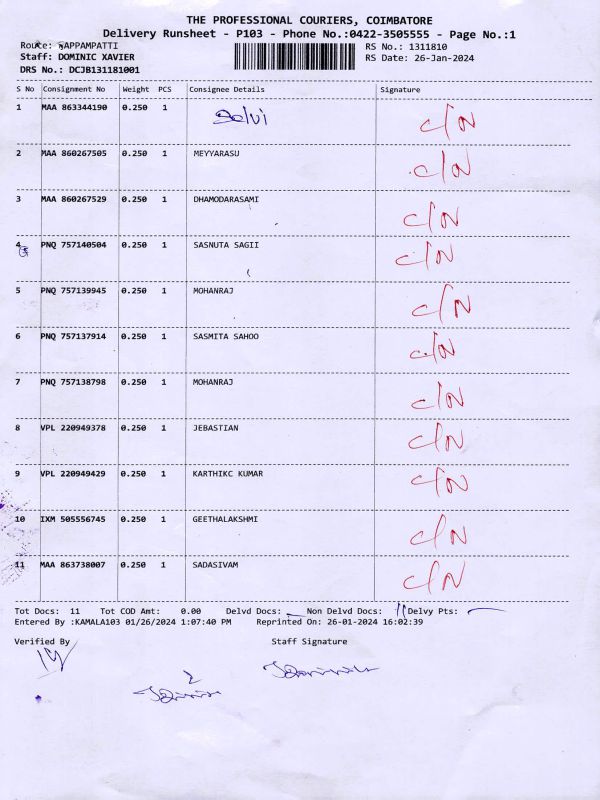 THE PROFESSIONAL COURIERS, COIMBATORE
Delivery Runsheet - P103 - Phone No.:0422-3505555 - Page No.:1
Route: RAPPAMPATTI
RS No.: 1311810
Staff: DOMINIC XAVIER
RS Date: 26-Jan-2024
DRS No.: DCJB131181001
S No Consignment No Weight PCS Consignee Details Signature
1 MAA 863344190 0.250 1 Selvi C/N
2 MAA 860267505 0.250 1 MEYYARASU C/N
3 MAA 860267529 0.250 1 DHAMODARASAMI C/N
4 PNQ 757140504 0.250 1 SASNUTA SAGII C/N
5 PNQ 757139945 0.250 1 MOHANRAJ C/N
6 PNQ 757137914 0.250 1 SASMITA SAHOO C/N
7 PNQ 757138798 0.250 1 MOHANRAJ C/N
8 VPL 220949378 0.250 1 JEBASTIAN C/N
9 VPL 220949429 0.250 1 KARTHIKC KUMAR C/N
10 IXM 505556745 0.250 1 GEETHALAKSHMI C/N
11 MAA 863738007 0.250 1 SADASIVAM C/N
Tot Docs: 11 Tot COD Amt: 0.00 Delvd Docs: Non Delvd Docs: 11 Delvy Pts:
Entered By :KAMALA103 01/26/2024 1:07:40 PM Reprinted On: 26-01-2024 16:02:39
Verified By Staff Signature